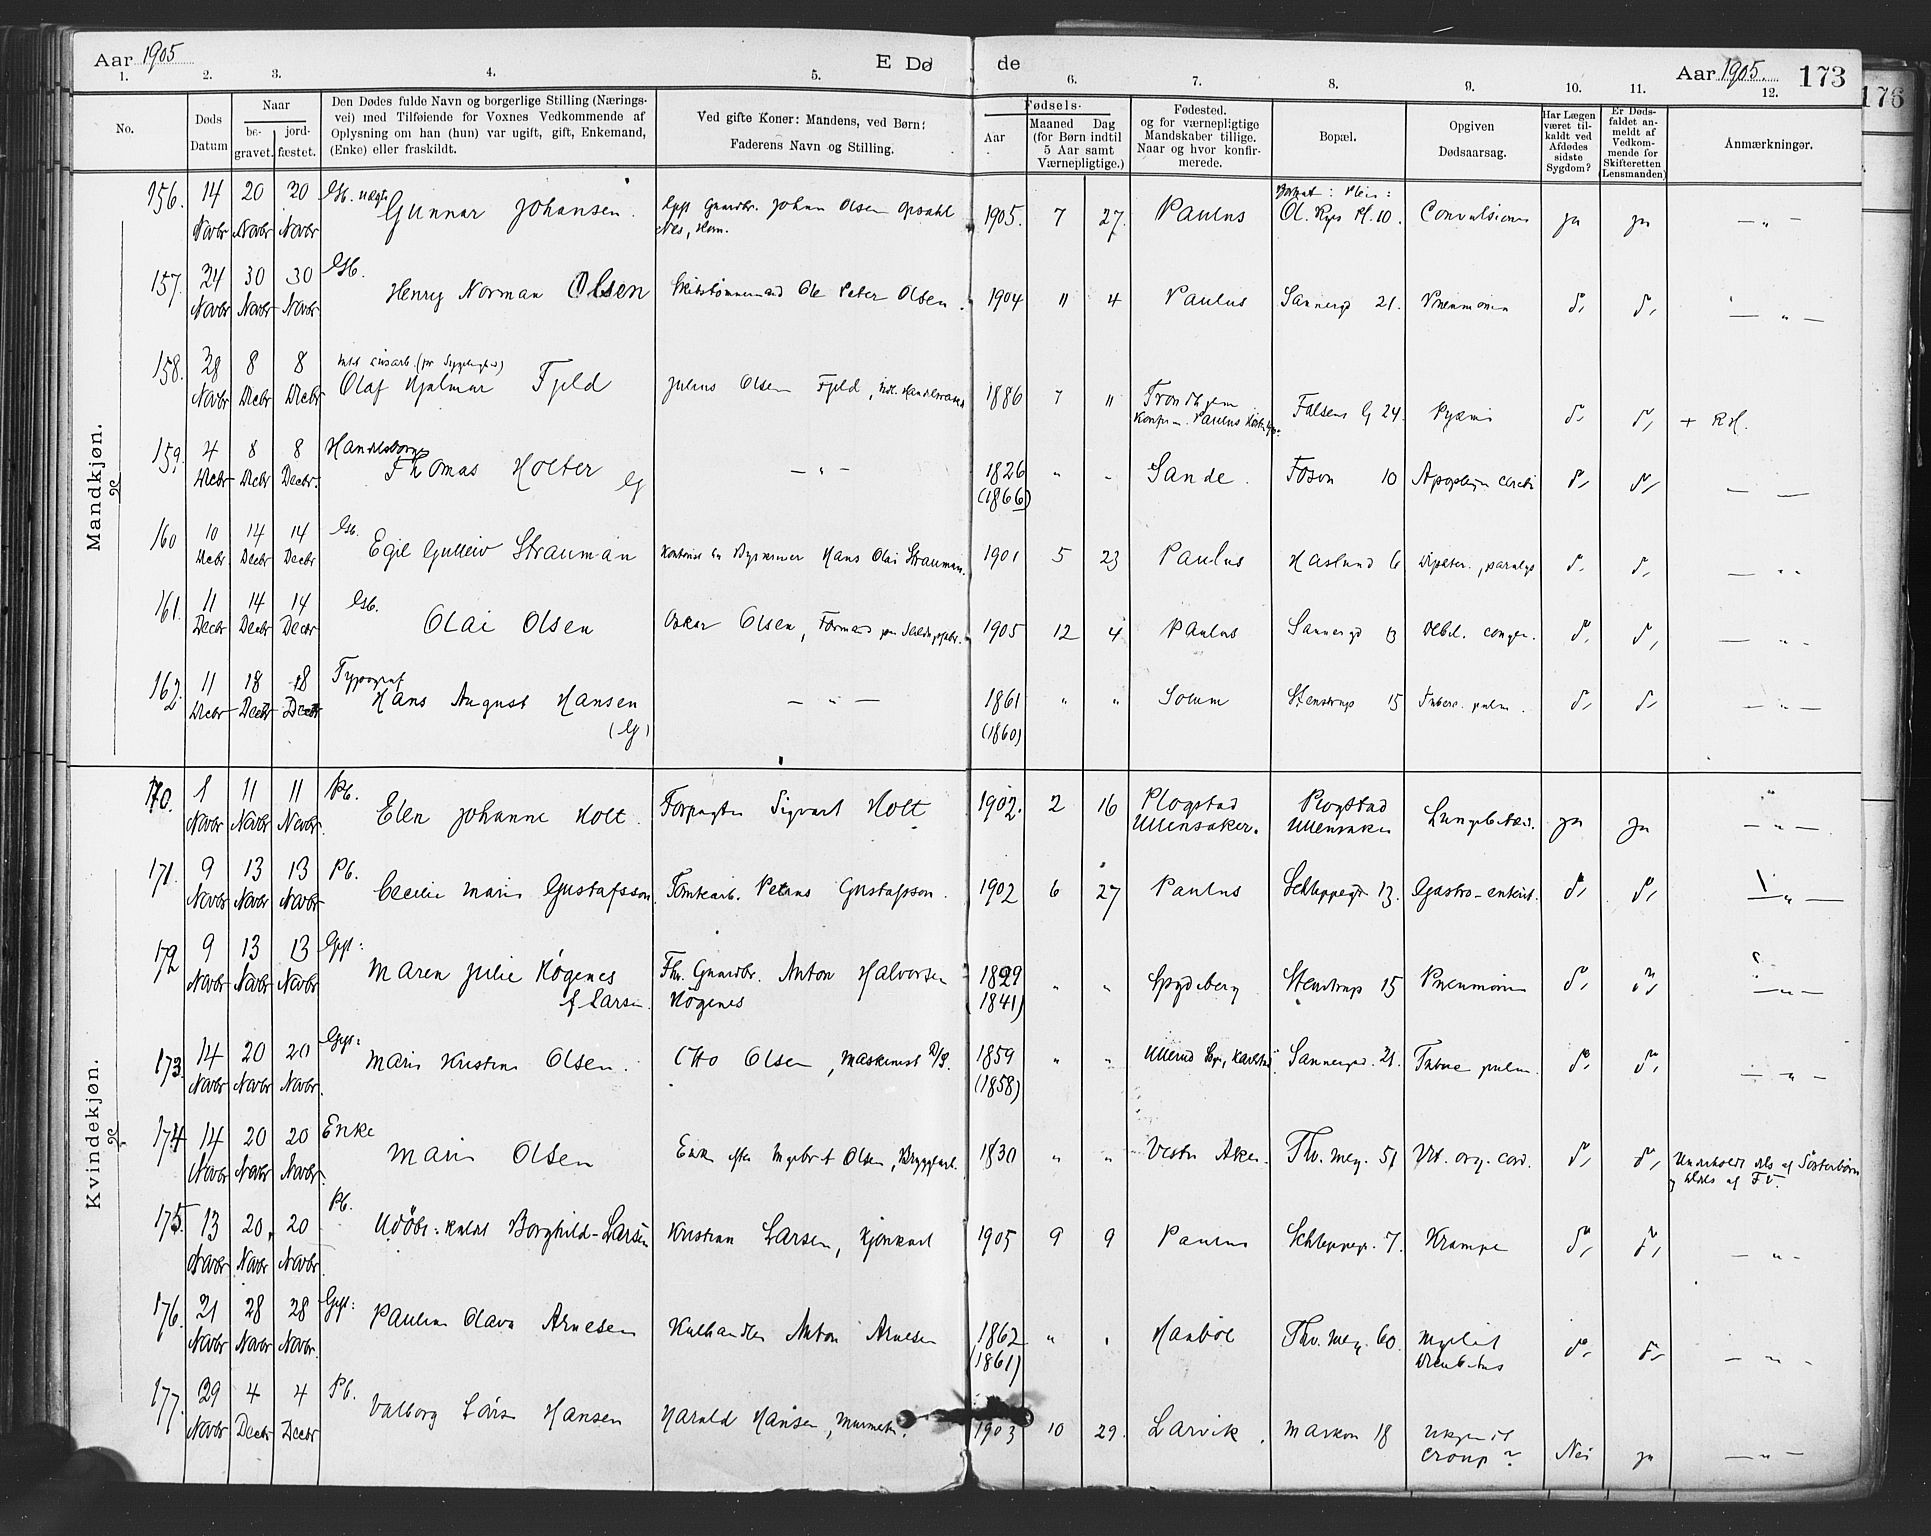 Aar 1905
E Dø de
Aar 1905. 173
176
1. 2. 3. 4. 5. 6. 7. 8. 9. 10. 11. 12.
No.
Døds Datum
Naar
be-gravet.
jord-fæstet.
Den Dødes fulde Navn og borgerlige Stilling (Nærings-
vei) med Tilføiende for Voxnes Vedkommende af
Oplysning om han (hun) var ugift, gift, Enkemand,
(Enke) eller fraskildt.
Ved gifte Koner: Mandens, ved Børn:
Faderens Navn og Stilling.
Fødsels-
Aar
Maaned Dag
(for Børn indtil
5 Aar samt
Værnepligtige.)
Fødested.
og for værnepligtige
Mandskaber tillige.
Naar og hvor konfir-
merede.
Bopæl.
Opgiven
Dødsaarsag.
Har Lægen
været til-
kaldt ved
Afdødes
sidste
Sygdom?
Er Døds-
faldet an-
meldt af
Vedkom-
mende for
Skifteretten
(Lensmanden)
Anmærkninger.
Mandkjøn.
156. 14 Novbr 20 Novbr 20 Novbr Gunnar Johansen. Johan Olsen Opsahl Nes, 1905. 7 27. Paulus Ol. Ryes Pl. 10. Convulsiones ja ja — " —
157. 24 Novbr 30 Novbr 30 Novbr Henry Norman Olsen Skibstømmermand Ole Peter Olsen. 1904 11 4 Paulus Sannergd 21. Pneumonia do. do. — " —
158. 28 Novbr 8 Decbr 8 Decbr Olaf Hjalmar Fjeld Julius Olsen Fjeld, 1886 7 11 Trondhjem Konfirm. Paulus Falsens G 24. Pyæmi do. do. +
159. 4 Decbr 8 Decbr 8 Decbr. Handelsborger Thomas Holter G — " — 1826 (1866) " " Sande. Foson 10 Apoplexia cerebri do. do. — —
160 10 Decbr. 14 Decbr 14 Decbr Gb. Egil Gulleiv Strauman Hans Olai Strauman. 1901 5 23 Paulus Haslund 6 Dipter., paralys do. do. — " "
161. 11 Decbr 14 Decbr 14 Decbr Gb. Olai Olsen Oskar Olsen, Formand 1905 12 4 Paulus Sannergd 13 Debil. congen. do. do. — " —
162. 11 Decbr 18 Decbr 18 Decbr Typograf Hans August Hansen (G) — " — 1861 (1860) " " Solum Stenstrup 15 Tuberc. pulm. do. do. — " —
Kvindekjøn.
170. 1 Novbr 11 Novbr 11 Novbr. Pb. Elen Johanne Holt. Forpagter Sigvart Holt 1902. 2 16 Plogstad Ullensaker. Plogstad Ullensaker Lungebetæn. ja ja — " —
171. 9 Novbr 13 Novbr 13 Novbr Pb. Cecilie Marie Gustafsson Tomtearb. Petrus Gustafsson. 1902 6 27 Paulus Schleppegr 13. Gastro-enterit. do. do. — " —
172 9 Novbr 13 Novbr 13 Novbr Gift: Maren Julie Høgenes f Larsen. Fhv. Gaardbr. Anton Halvorsen Høgenes 1829 (1841) " " Spydeberg Stenstrup 15 Pneumonia do. do. — " —
173. 14 Novbr 20 Novbr 20 Novbr. Gift: Marie Kristine Olsen. Otto Olsen, Maskinist D/S. 1859 (1858) " " Ullerud Sogn, Karlstad Sannergd. 21. Tuberc pulm. do. do. — " —
174. 14 Novbr 20 Novbr 20 Novbr. Enke Marie Olsen Enke efter Ingebret Olsen, Bryggearb. 1830 " " Vestre Aker. Thv. Mey. 51 Vit. org. cord. do. do. Underholdt dels af Søsterbørn og dels af F.V.
175. 13 Novbr 20. Novbr 20 Novbr. Pb. Udøbt: kaldt Borghild Larsen Kristian Larsen, Kjørekarl 1905 9 9 Paulus Schleppegr. 7. Krampe do. do. — " —
176. 21 Novbr 28 Novbr 28 Novbr. Gift: Pauline Olava Arnesen Kulhandler Anton Arnesen 1862 (1861) " " Hanbøl Thv. Mey. 60. Myelit Decubitus do. do. — " —
177. 29 Novbr 4 Decbr 4 Decbr Pb. Valborg Lovise Hansen Harald Hansen, Murmester. 1903 10 29. Larvik. Markvn 18 Ukjendt croup? Nei ja — " —